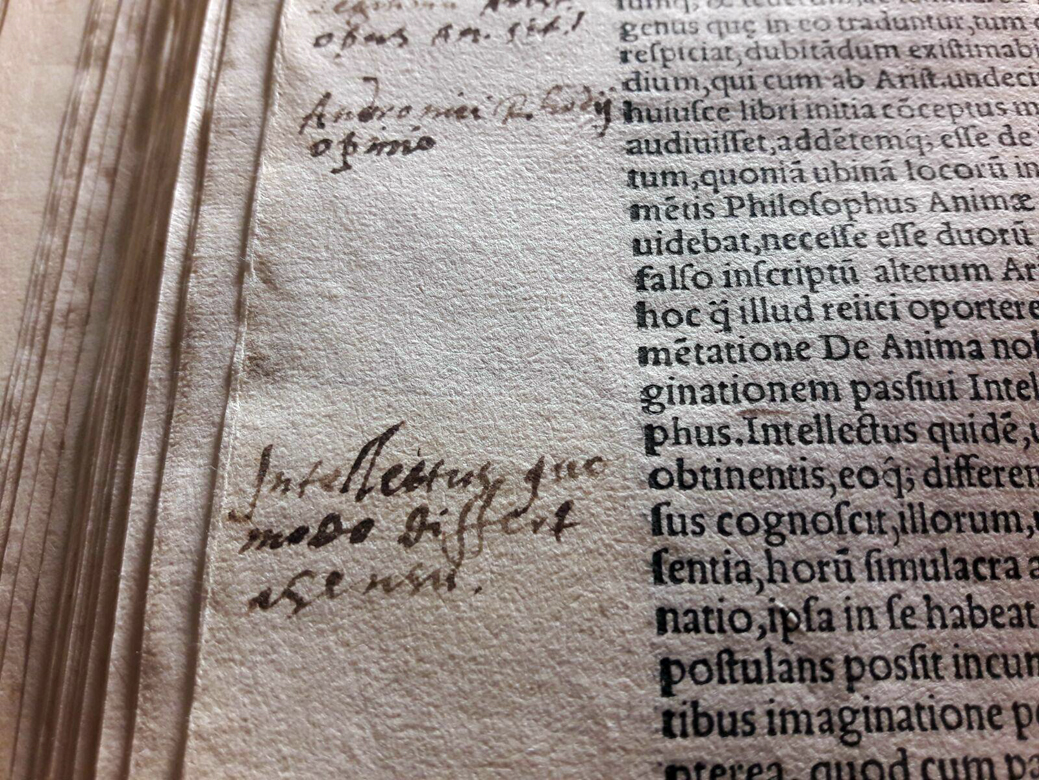 opus An. sit!
Andronici Rhodij
opinio
Intellectus quo
modo differt
a sensu.
genus quę in eo traduntur, tum
respiciat, dubitādum existimabi
dium, qui cum ab Arist. undeci
huiusce libri initia cōceptus m
audiuisset, addētemq; esse de
tum, quoniā ubinā locorū in
mētis Philosophus Animæ
uidebat, necesse esse duorū
falso inscriptū alterum Ar
hoc q̄ illud reiici oportere
mētatione De Anima nob
ginationem passiui Intel
phus. Intellectus quidē, u
obtinentis, eoq; differen
sus cognoscit, illorum, u
sentia, horū simulacra a
natio, ipsa in se habeat
postulans possit incur
tibus imaginatione pe
pterea, quod cum pa